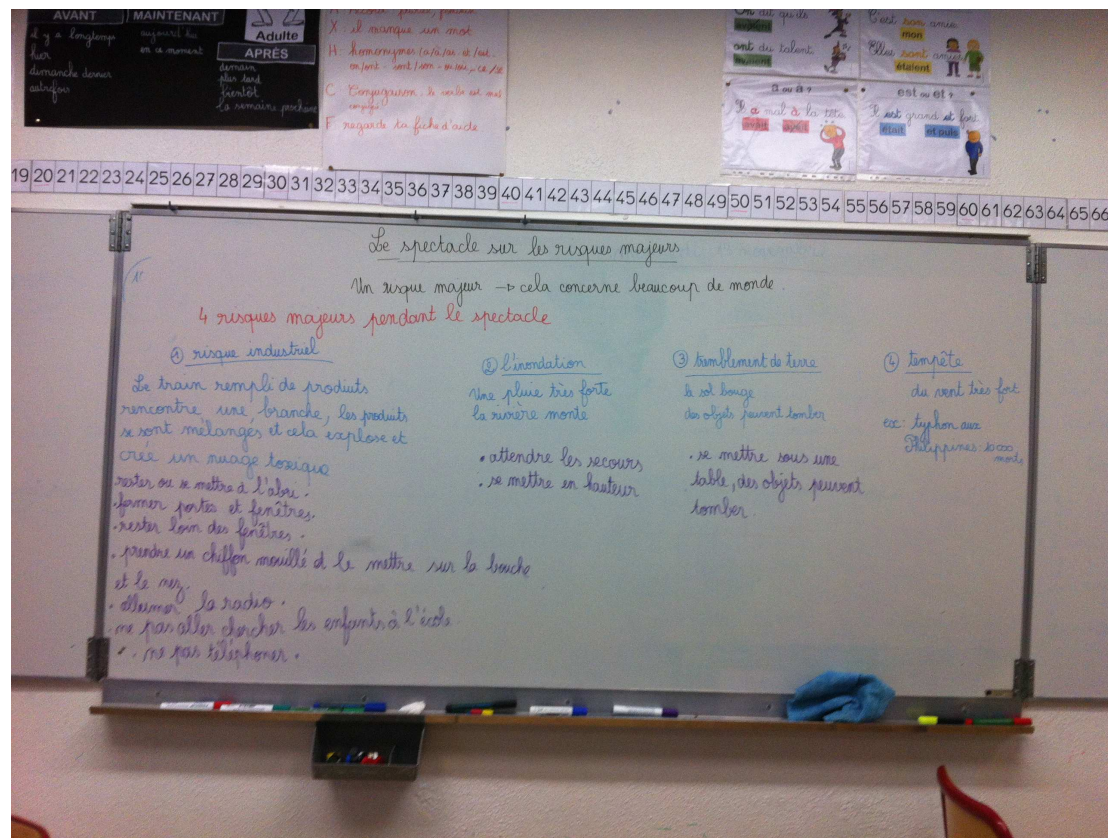 AVANT
il y a longtemps
hier
dimanche dernier
autrefois
MAINTENANT
aujourd'hui
en ce moment
Adulte
APRÈS
demain
plus tard
bientôt
la semaine prochaine
X : il manque un mot
H : homonymes (a/à/as - et/est -
on/ont - sont/son - ou/où - ce/se
C Conjugaison : le verbe est mal
F regarde ta fiche d'aide
On dit qu'ils
ont du talent.
C'est son amie.
mon
Elles sont amies.
étaient
a ou à ?
Il a mal à la tête
avait avait
est ou et ?
Il est grand et fort
était et puis
19 20 21 22 23 24 25 26 27 28 29 30 31 32 33 34 35 36 37 38 39 40 41 42 43 44 45 46 47 48 49 50 51 52 53 54 55 56 57 58 59 60 61 62 63 64 65 66
Le spectacle sur les risques majeurs
Un risque majeur → cela concerne beaucoup de monde.
4 risques majeurs pendant le spectacle
① risque industriel
Le train rempli de produits
rencontre une branche, les produits
se sont mélangés et cela explose et
crée un nuage toxique
rester ou se mettre à l'abri.
• fermer portes et fenêtres.
• rester loin des fenêtres.
• prendre un chiffon mouillé et le mettre sur la bouche
et le nez.
• allumer la radio.
• ne pas aller chercher les enfants à l'école
• ne pas téléphoner.
② l'inondation
Une pluie très forte
la rivière monte
• attendre les secours
• se mettre en hauteur
③ tremblement de terre
le sol bouge
des objets peuvent tomber
• se mettre sous une
table, des objets peuvent
tomber.
④ tempête
du vent très fort
ex : typhon aux
Philippines 10 000
morts